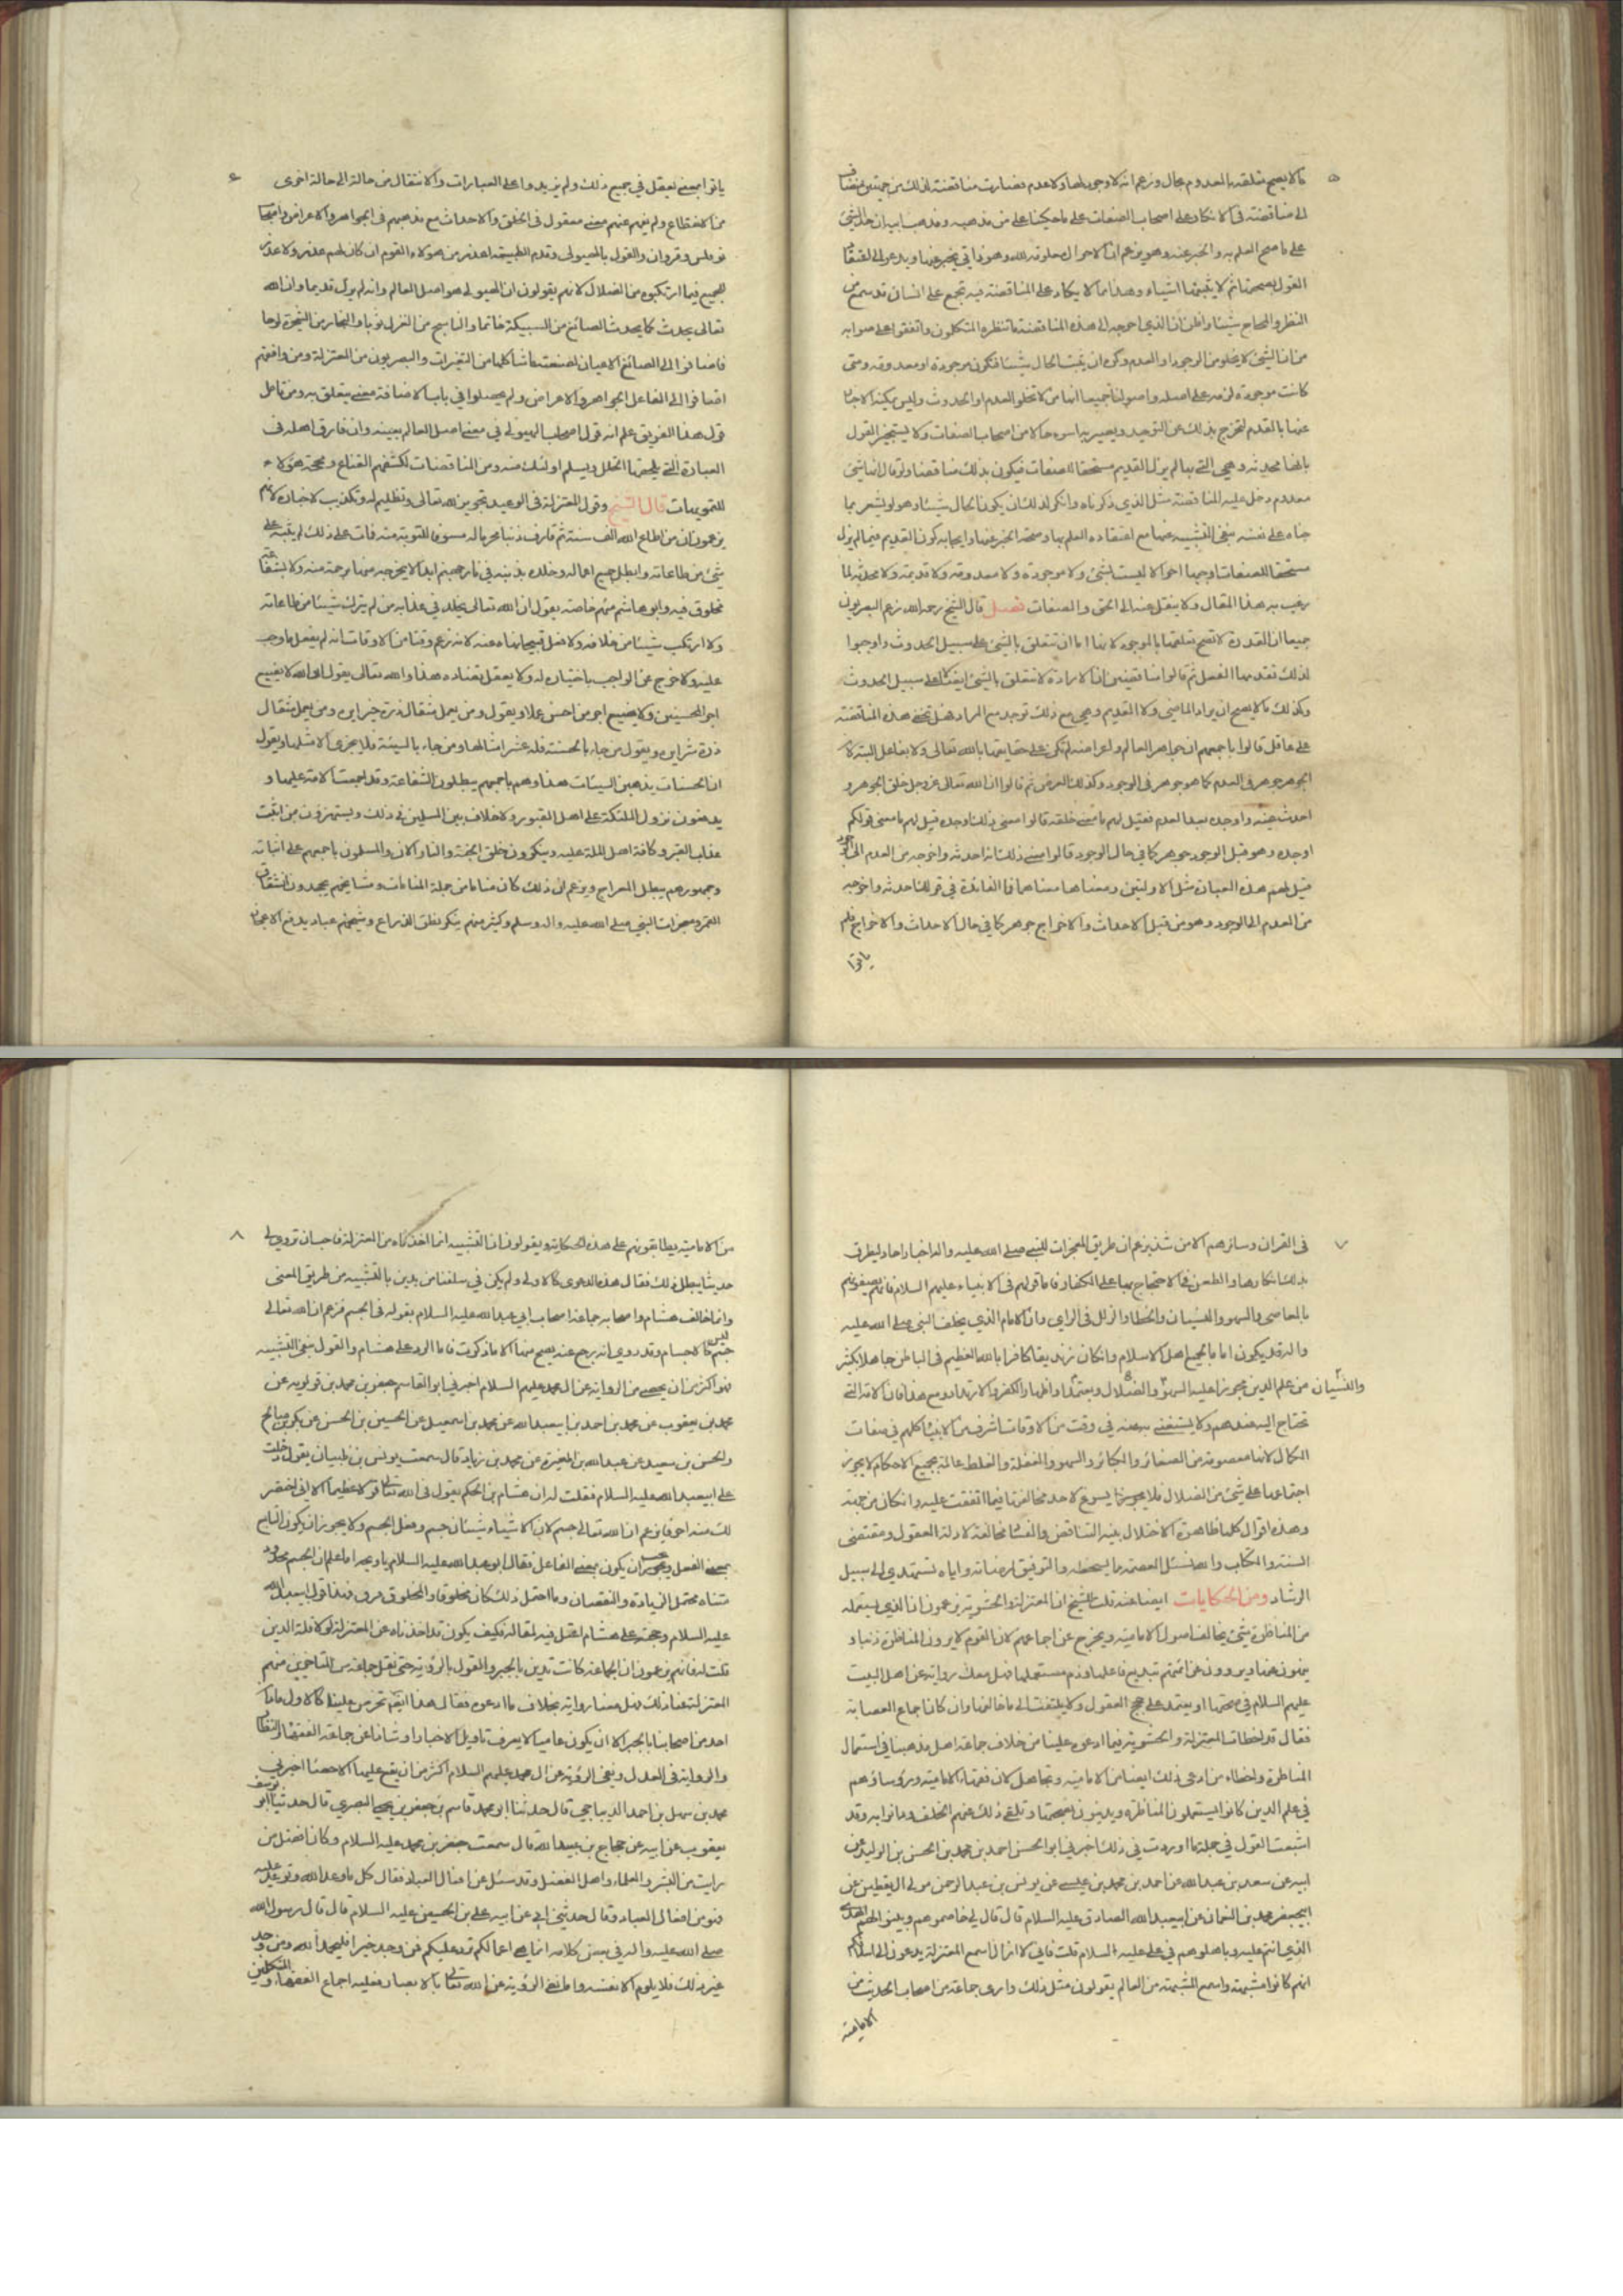 ما لا يصح تعلقه بالمعدوم بحال وزعم انه لا وجود لها ولا عدم فصارت مناقضته لذلك من جهتين
الى مناقضته فى الانكار على اصحاب الصفات على ما حكيناه على من مذهبه ومذهب ابيه ان حد الشئ
على ما صح العلم به والخبر عنه وهو يزعم ان الاحوال معلومة لله وهو ذا يخبر عنها ويدعو الى اعتقاد
القول بصحتها ثم لا يثبتها اشياء وهذا مما لا يكاد على المناقضة فيه تجمع على انسان قد سمع من
النظر والحجاج شيئا واظن ان الذي احوجه الى هذه المناقضة ما تنظره المتكلمون واتفقوا على صوابه
من ان الشئ لا يخلو من الوجود او العدم وكره ان يثبت الحال شيئا فتكون موجودة او معدومة ومتى
كانت موجودة لزمه على اصله واصولنا جميعا انها من لا تخلو العدم او الحدوث وليس يمكنه الاخبار
عنها بالقدم لتخرج بذلك عن التوحيد ويصير به اسوء حالا من اصحاب الصفات ولا يستجيز القول
بانها محدثة وهى التي بها لم يزل القديم مستحقا للصفات فيكون بذلك مناقضا ولو قال انها شئ
معدوم دخل عليه المناقضة مثل الذي ذكرناه وانكر لذلك ان يكون الحال شيئا وهو لو يشعر بما
جناه على نفسه بنفى الشيئية عنها مع اعتقاده العلم بها وصحة الخبر عنها وايجابه كون القديم فيما لم يزل
مستحقا للصفات اوجبها احوالا ليست بشئ ولا موجودة ولا معدومة ولا قديمة ولا محدثة لما
رغب به هذا المقال ولا ينقل عنه الى الحق والصفات فصل قال الشيخ رحمه الله زعم البصريون
جميعا ان القدرة لا تصح تعلقها بالموجود لانها انما ان تتعلق بالشئ على سبيل الحدوث واوجبوا
لذلك تقدمها الفعل ثم قالوا مناقضين ان الارادة لا تتعلق بالشئ ايضا الا على سبيل الحدوث
وكذلك ما لا يصح ان يراد الماضى ولا القديم وهى مع ذلك توجد مع المراد فهل تخفى هذه المناقضة
على عاقل قالوا باجمعهم ان جواهر العالم واعراضه لم تكن على حقايقها بالله تعالى ولا بفاعل البتة لان
الجوهر جوهر فى العدم كما هو جوهر فى الوجود وكذلك العرض ثم قالوا ان الله تعالى عز وجل خلق الجوهر و
احدث عينه واوجده بعد العدم فقيل لهم ما معنى خلقه قالوا معنى ذلك اوجده قيل لهم ما معنى قولكم
اوجده وهو قبل الوجود جوهر كما فى حال الوجود قالوا معنى ذلك انه احدثه واخرجه من العدم الى الوجود
قيل لهم هذه العبارة مثل الاوليتين ومعناها معناهما فما الفائدة فى قولك احدثه واخرجه
من العدم الى الوجود وهو من قبل الاحداث والاخراج جوهر كما فى حال الاحداث والاخراج فلم
ياتوا
ياتوا بمعنى يعقل في جميع ذلك ولم يزيدوا على العبارات والانتقال من حالة الى حالة اخرى
من الانقطاع ولم يفهم عنهم معنى معقول فى الخلق والاحداث مع مذهبهم فى الجواهر والاعراض
والقول بالهيولى وقدم الطبيعة اعذر من هؤلاء القوم ان كان لهم عذر ولا عذر
للجميع فيما ارتكبوه من الضلال لانهم يقولون ان الهيولى هو اصل العالم وانه لم يزل قديما وان الله
تعالى يحدث كما يحدث الصائغ من السبيكة خاتما والناسج من الغزل ثوبا والنجار من الشجرة لوحا
فاضافوا الى الصانع الاعيان لصنعته ما شاكلها من التغيرات والبصريون من المعتزلة ومن وافقهم
اضافوا الى الفاعل الجواهر والاعراض ولم يحصلوا في باب الاضافة معنى يتعلق به ومن تامل
قول هذا الفريق علم انه قول اصحاب الهيولى في معنى اصل العالم بعينه وان فارق اهله فى
العبارة التي يلحقها الخلل ويسلم اولئك منه ومن المناقضات لكشفهم القناع ومحجة هؤلاء
للتمويهات قال الشيخ وقول المعتزلة فى الوعيد تجوير لله تعالى وتظليم له وتكذيب لاخباره لانهم
يزعمون ان من اطاع الله الف سنة ثم قارف ذنبا محرما له مسوفا للتوبة منه فمات على ذلك لم يثبه على
شئ من طاعاته وابطل جميع اعماله وخلده بذنبه فى نار جهنم ابدا لا يخرجه منها برحمة منه ولا بشفاعة
مخلوق فيه وابو هاشم منهم خاصة يقول ان الله تعالى يخلد في عذابه من لم يترك شيئا من طاعاته
ولا ارتكب شيئا من خلافه ولا فعل قبيحا نهاه عنه لانه زعم وقتا من الاوقات انه لم يفعل ما وجب
عليه ولا خرج عن الواجب باختيار له ولا بفعل يضاده هذا والله تعالى يقول ان الله لا يضيع
اجر المحسنين ولا يضيع اجر من احسن عملا ويقول ومن يعمل مثقال ذرة خيرا يره ومن يعمل مثقال
ذرة شرا يره ويقول من جاء بالحسنة فله عشر امثالها ومن جاء بالسيئة فلا يجزى الا مثلها ويقول
ان الحسنات يذهبن السيئات هذا وهم باجمعهم يبطلون الشفاعة وقد اجمعت الامة عليها و
يدفعون نزول الملئكة على اهل القبور ولا خلاف بين المسلمين فى ذلك ويستهزؤن من اثبت
عذاب القبر وكافة اهل الملة عليه وينكرون خلق الجنة والنار الان والمسلمون باجمعهم على اثباته
وجمهورهم يبطل المعراج ويزعم ان ذلك كان مناما من جملة المنامات ومشايخهم يجحدون انشقاق
القمر ومعجزات النبى صلى الله عليه واله وسلم وكثير منهم ينكر نطق الذراع وشيخهم عباد يدفع الاعجاز
فى القران وسائرهم الا من شذ يزعم ان طريق المعجزات للنبى صلى الله عليه واله اخبار احاد ليطرق
بذلك انكارها والطعن فى الاحتجاج بها على الكفار فاما قولهم فى الانبياء عليهم السلام فانهم يصفونهم
بالمعاصى والسهو والنسيان والخطا والزلل فى الراى وان الامام الذي يخلف النبى صلى الله عليه
واله قد يكون اماما لجميع اهل الاسلام وان كان زنديقا كافرا بالله العظيم فى الباطن جاهلا بكثير
من علم الدين مجوزا عليه السهو والضلال ويتعمد واظهار الكفر والارتداد ومع هذا فان الامة التي والنسيان
تحتاج اليه عندهم ولا يستغنى عنه في وقت من الاوقات اشرف من الانبياء كلهم في صفات
الكمال لانها معصومة من الصغائر والكبائر والسهو والغفلة والغلط عالمة بجميع الاحكام لا يجوز
اجتماعها على شئ من الضلال فلا يسوغ لاحد مخالفتها فيما اتفقت عليه وان كان من جهته
وهذه اقوال كلها ظاهرة الاختلال بينة التناقض والفساد مخالفة لادلة العقول ومقتضى
السنة والكتاب والله نسئل العصمة مما يسخطه والتوفيق لمرضاته واياه نستهدي الى سبيل
الرشاد ومن الحكايات ايضا عنه قلت للشيخ ان المعتزلة والحشوية يزعمون ان الذي يستعمله
من المناظرة شئ يخالف اصول الامامية ويخرج عن اجماعهم لان القوم لا يرون المناظرة دينا و
ينهون عنها ويروون عن ائمتهم تبديع فاعلها وذم مستعملها فهل معك رواية عن اهل البيت
عليهم السلام في صحتها او يعتمد على حجج العقول ولا يلتفت الى ما خالفها وان كان اجماع العصابة
فقال قد اخطات المعتزلة والحشوية فيما ادعوه علينا من خلاف جماعة اهل مذهبنا فى استعمال
المناظرة واخطاء من ادعى ذلك ايضا من الامامية وتجاهل لان فقهاء الامامية ورؤساؤهم
في علم الدين كانوا يستعملون المناظرة ويدينون بصحتها وتلقى ذلك عنهم الخلف ودانوا به وقد
اشبعت القول في جملة ما اوردت في ذلك اخبرني ابو الحسن احمد بن محمد بن الحسن بن الوليد عن
ابيه عن سعد بن عبد الله عن احمد بن محمد بن عيسى عن يونس بن عبد الرحمن مولى ال يقطين عن
ابيجعفر محمد بن النعمان عن ابيعبد الله الصادق عليه السلام قال قال لى خاصموهم وبينوا لهم الهدى
الذي انتم عليه وباهلوهم فى على عليه السلام قلت فانى لا ازال اسمع المعتزلة يدعون الى اسلافكم
انهم كانوا مشبهة واسمع المشبهة من العالم يقولون مثل ذلك وارى جماعة من اصحاب الحديث من
الامامية
من الامامية يطابقونهم على هذه الحكاية ويقولون ان التشبيه انما اخذناه من المعتزلة فاحب ان تروى لى
حديثا يبطل ذلك فقال هذه الدعوى كالاولى ولم يكن في سلفنا من يدين بالتشبيه من طريق المعنى
وانما خالف هشام واصحابه جماعة اصحاب ابي عبد الله عليه السلام بقوله فى الجسم فزعم ان الله تعالى
جسم ليس كالاجسام وقد روي انه رجع عنه يصح منها الا ما ذكرت فاما الرد على هشام والقول بنفى التشبيه
فهو اكثر من ان يحصى من الرواية عن ال محمد عليهم السلام اخبرني ابو القاسم جعفر بن محمد بن قولويه عن
محمد بن يعقوب عن محمد بن احمد بن ابيعبد الله عن محمد بن اسمعيل عن الحسين بن الحسن عن بكر بن صالح
والحسن بن سعيد عن عبد الله بن المغيرة عن محمد بن زياد قال سمعت يونس بن ظبيان يقول دخلت
على ابيعبد الله عليه السلام فقلت له ان هشام بن الحكم يقول فى الله تعالى قولا عظيما الا انى اختصر
لك منه احرفا يزعم ان الله تعالى جسم لان الاشياء شيئان جسم وفعل الجسم ولا يجوز ان يكون الصانع
بمعنى الفعل ويجوز ان يكون بمعنى الفاعل فقال ابو عبد الله عليه السلام يا ويحه اما علم ان الجسم محدود
متناه محتمل الزيادة والنقصان وما احتمل ذلك كان مخلوقا والمخلوق فهذا قول ابيعبد الله
عليه السلام وحجته على هشام اعتل فيه لمقاله فكيف يكون قد اخذناه عن المعتزلة لولا قلة الدين
قلت له فانهم يزعمون ان الجماعة كانت تدين بالجبر والقول بالرؤية حتى نقل جماعة من المتاخرين منهم
المعتزلة عن ذلك فهل معنا رواية بخلاف ما ادعوه فقال هذا ايضا تخرص علينا كالاول ما دان
احد من اصحابنا بالجبر الا ان يكون عاميا لا يعرف تاويل الاخبار او شاذا عن جماعة الفقهاء والنظار
والرواية فى العدل ونفى الرؤية عن ال محمد عليهم السلام اكثر من ان يقع عليها الاحصاء اخبرني
محمد بن سهل بن احمد الديباجي قال حدثنا ابو محمد قاسم بن جعفر بن يحيى البصري قال حدثنا ابو يوسف
يعقوب عن ابيه عن حجاج بن عبد الله قال سمعت جعفر بن محمد عليه السلام وكان افضل من
رايت من البشر والعلماء واهل الفضل وقد سئل عن افعال العباد فقال كل ما وعد الله وتوعد عليه
فهو من افعال العباد وقال حدثني ابي عن ابيه على بن الحسين عليه السلام قال قال رسول الله
صلى الله عليه واله في بعض كلامه انما هي اعمالكم ترد عليكم فمن وجد خيرا فليحمد الله ومن وجد
غير ذلك فلا يلوم الا نفسه واما نفى الرؤية عن الله تعالى بالابصار فعليه اجماع الفقهاء والمتكلمين